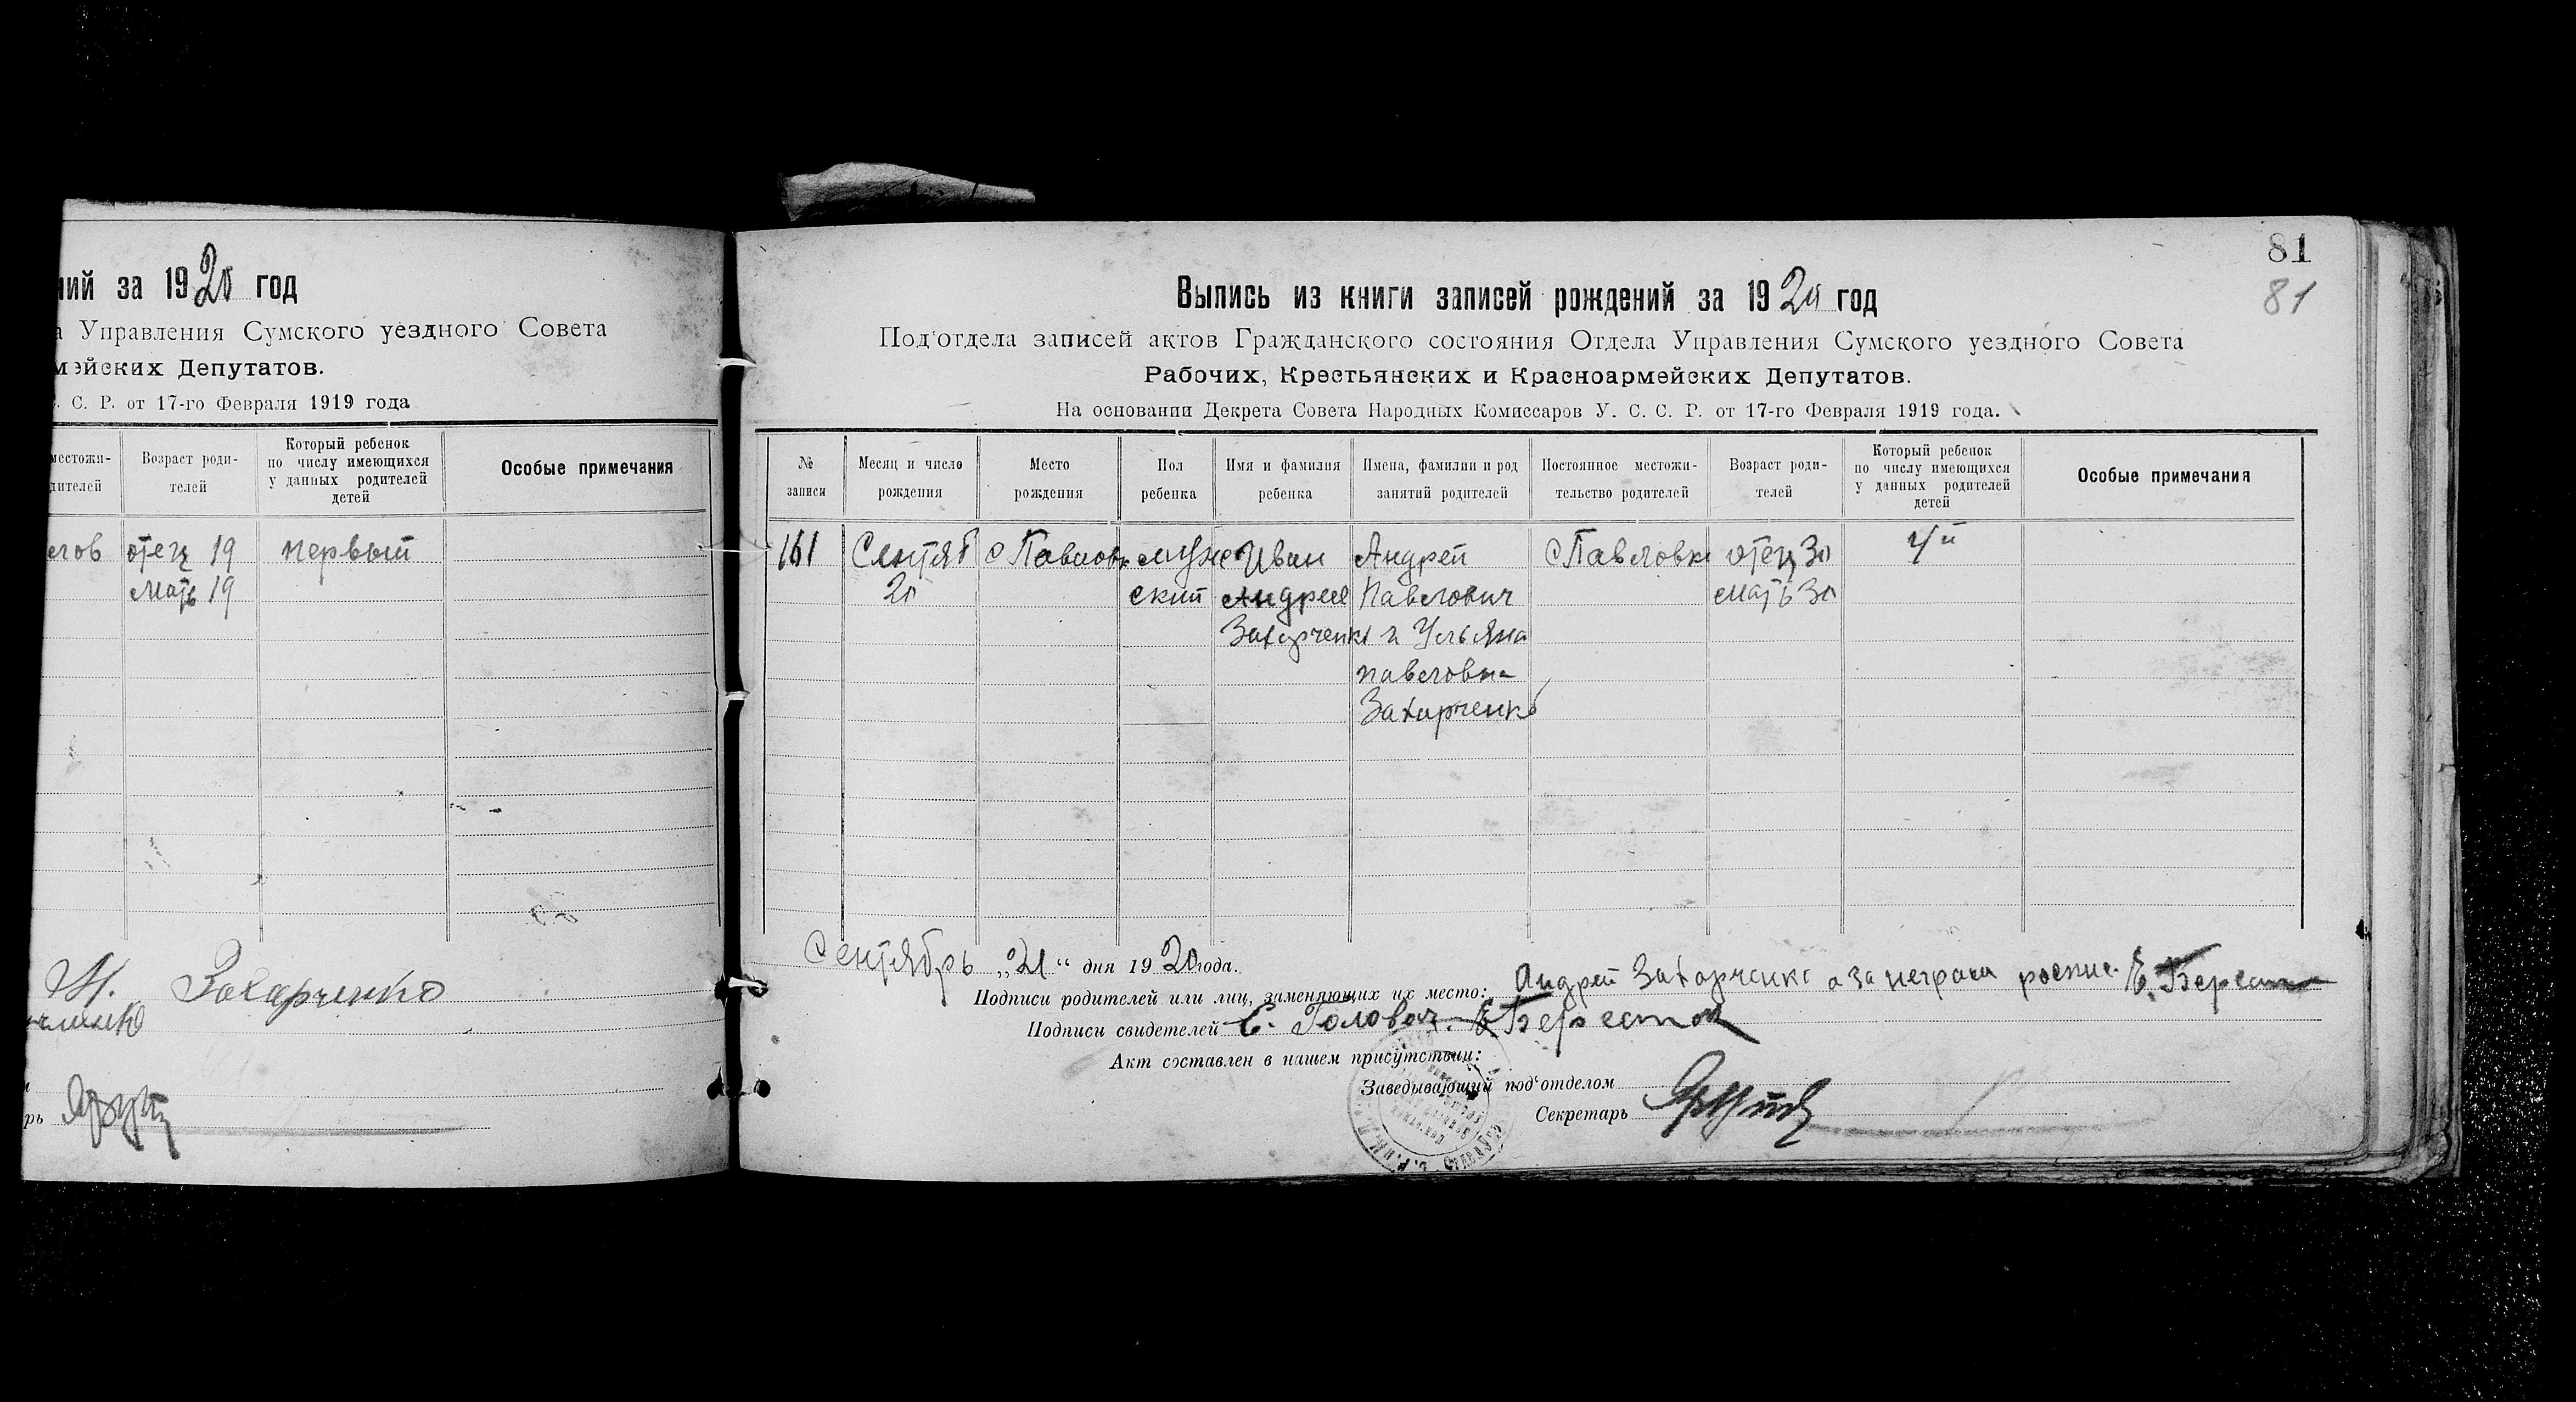 ний за 1920 год
а Управления Сумского уездного Совета
мейских Депутатов.
. С. Р. от 17-го Февраля 1919 года
местожи-
дителей
Возраст роди-
телей
Который ребенок
по числу имеющихся
у данных родителей
детей
Особые примечания
отец 19
первый
мать 19
М. Захарченко
рь
81
81
Выпись из книги записей рождений за 1920 год
Под'отдела записей актов Гражданского состояния Отдела Управления Сумского уездного Совета
Рабочих, Крестьянских и Красноармейских Депутатов.
На основании Декрета Совета Народных Комиссаров У. С. С. Р. от 17-го Февраля 1919 года.
№
записи
Месяц и число
рождения
Место
рождения
Пол
ребенка
Имя и фамилия
ребенка
Имена, фамилии и род
занятий родителей
Постоянное местожи-
тельство родителей
Возраст роди-
телей
Который ребенок
по числу имеющихся
у данных родителей
детей
Особые примечания
161
Сентяб
20
с Павловк
муже
ский
Иван
Андрее
Захарченко
Андрей
Павлович
и Ульяна
павловна
Захарченко
с Павловк
отец 30
мать 30
4й
Сентябрь „21“ дня 1920 года.
Подписи родителей или лиц, заменяющих их место: Андрей Захарченко а за неграм роспис. Е. Берест
Подписи свидетелей С. Головач. Е Берест
Акт составлен в нашем присутствии:
Заведывающий под'отделом
Секретарь